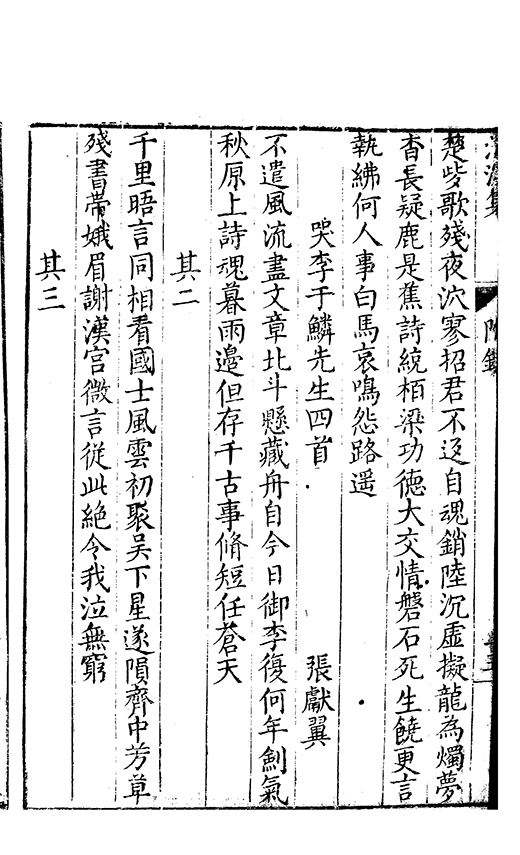 楚些歌殘夜泬寥招君不返自魂銷陸沉虛擬龍為燭夢
杳長疑鹿是蕉詩統栢梁功德大交情磐石死生饒更言
執紼何人事白馬哀鳴怨路遥
哭李于鱗先生四首 張獻翼
不遣風流盡文章北斗懸藏舟自今日御李復何年劍氣
秋原上詩魂暮雨邉但存千古事脩短任蒼天
其二
千里晤言同相看國士風雲初聚吴下星遂隕齊中芳草
殘書帶娥眉謝漢宫微言從此絶令我泣無窮
其三